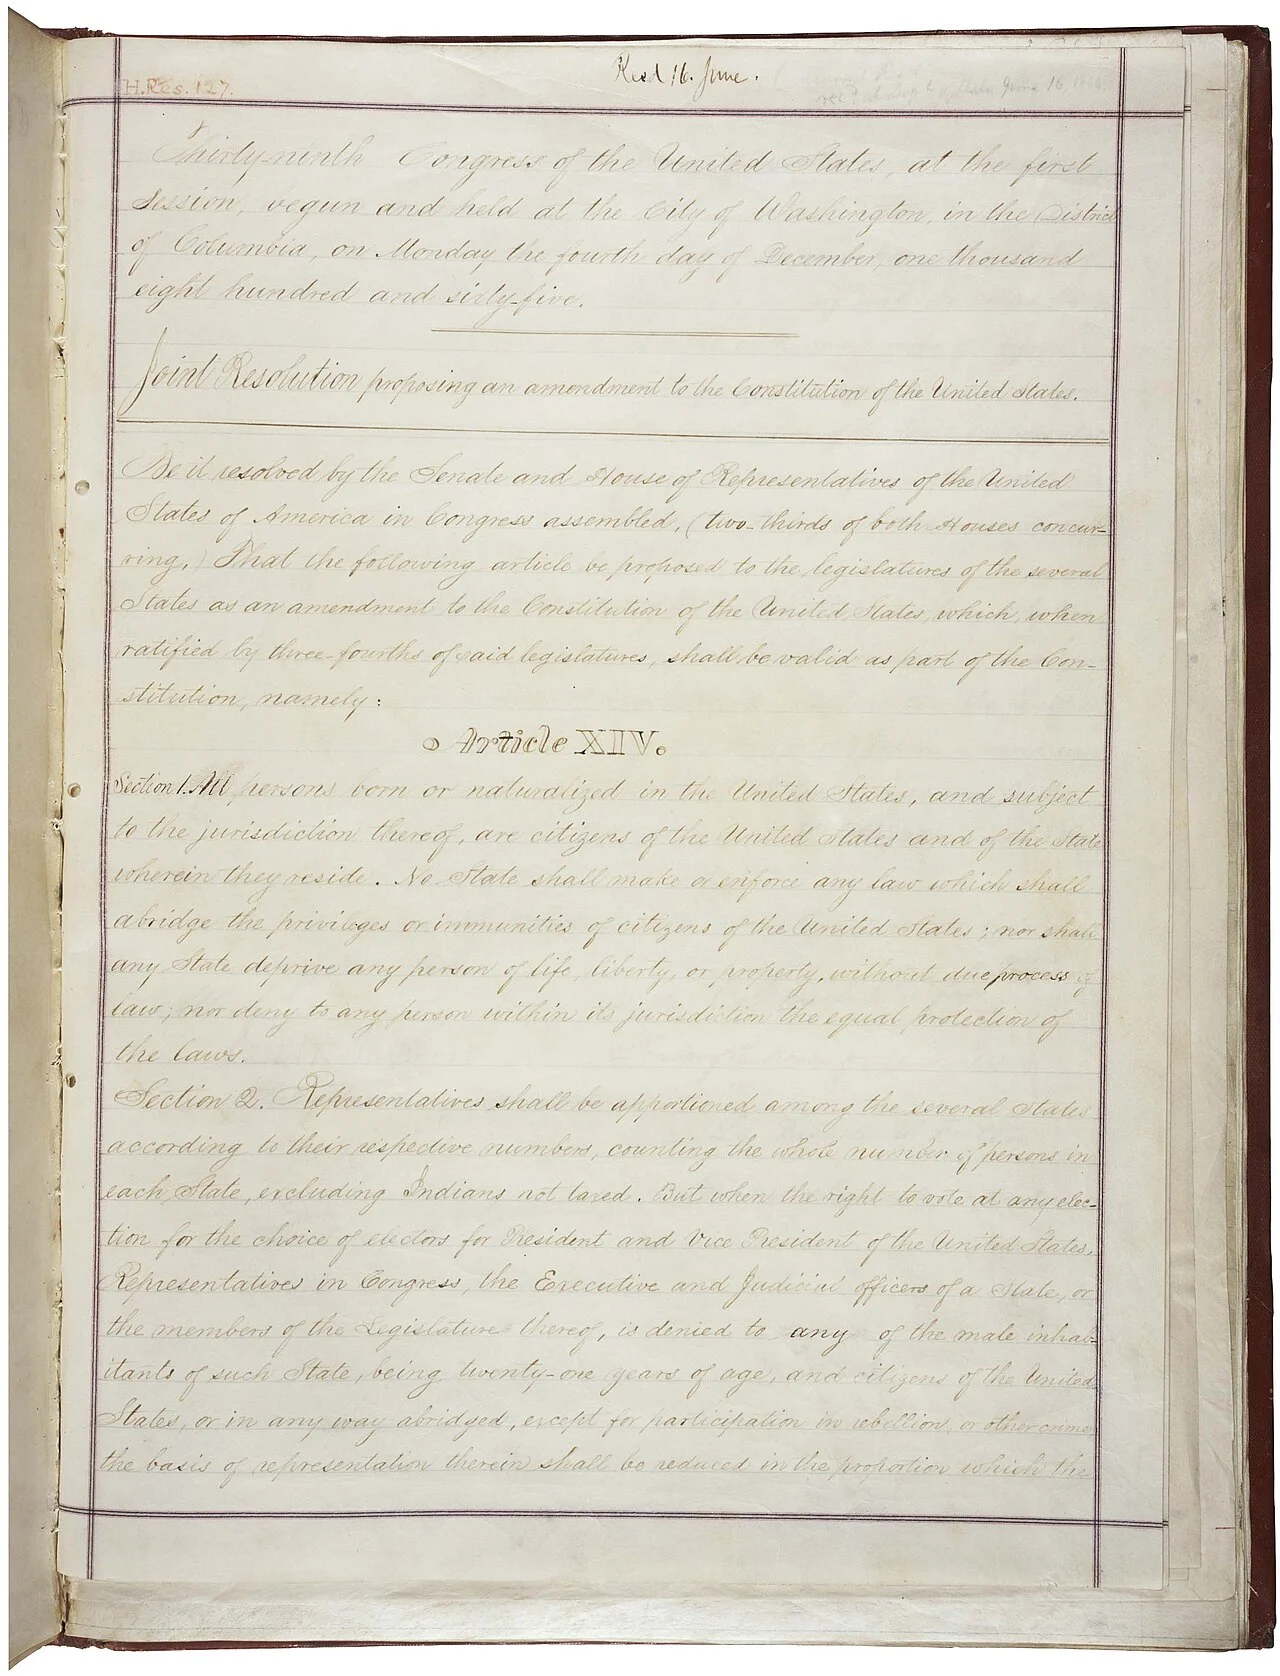 H.Res.127.
Recd 16. June.
June 16,
Thirty-ninth Congress of the United States, at the first
Session, begun and held at the City of Washington, in the District
of Columbia, on Monday the fourth day of December, one thousand
eight hundred and sixty-five.
Joint Resolution proposing an amendment to the Constitution of the United States.
Be it resolved by the Senate and House of Representatives of the United
States of America in Congress assembled, (two-thirds of both Houses concur-
ring,) That the following article be proposed to the legislatures of the several
States as an amendment to the Constitution of the United States, which, when
ratified by three-fourths of said legislatures, shall be valid as part of the Con-
stitution, namely:
Article XIV.
Section 1. All persons born or naturalized in the United States, and subject
to the jurisdiction thereof, are citizens of the United States and of the State
wherein they reside. No State shall make or enforce any law which shall
abridge the privileges or immunities of citizens of the United States; nor shall
any State deprive any person of life, liberty, or property, without due process of
law; nor deny to any person within its jurisdiction the equal protection of
the laws.
Section 2. Representatives shall be apportioned among the several States
according to their respective numbers, counting the whole number of persons in
each State, excluding Indians not taxed. But when the right to vote at any elec-
tion for the choice of electors for President and Vice President of the United States,
Representatives in Congress, the Executive and Judicial officers of a State, or
the members of the Legislature thereof, is denied to any of the male inhab-
itants of such State, being twenty-one years of age, and citizens of the United
States, or in any way abridged, except for participation in rebellion, or other crime
the basis of representation therein shall be reduced in the proportion which the